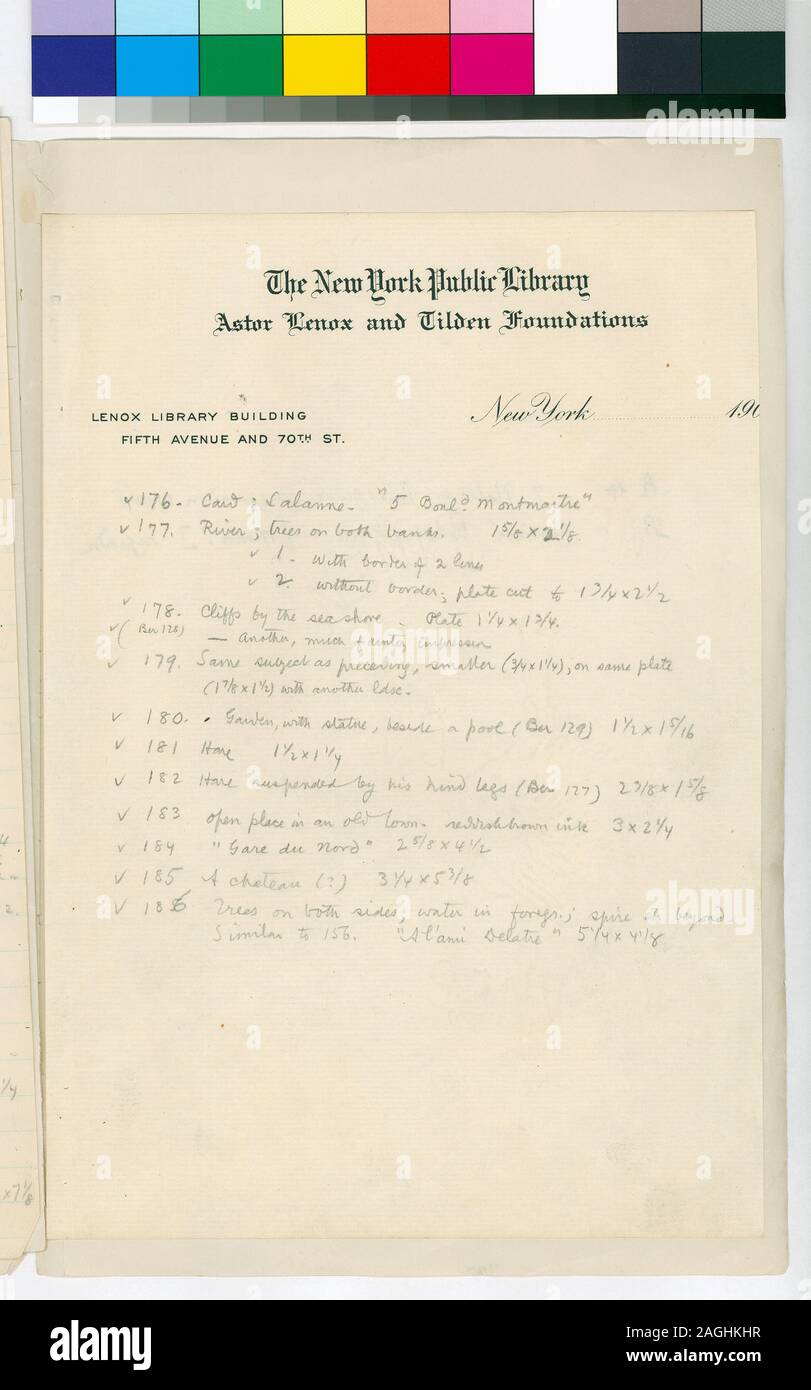 The New York Public Library
Astor Lenox and Tilden Foundations
LENOX LIBRARY BUILDING
FIFTH AVENUE AND 70TH ST.
New York 190
✓ 176. Card; Lalanne. "5 Boul^d Montmartre"
✓ 177. River; trees on both banks. 1 5/8 x 2 1/8.
✓ 1. With border of 2 lines
✓ 2. without border; plate cut to 1 3/4 x 2 1/2
✓ 178. Cliffs by the sea shore. Plate 1 1/4 x 1 3/4.
✓ (Ber 128) — Another, much fainter impression
✓ 179. Same subject as preceding, smaller (3/4 x 1 1/4), on same plate
(1 7/8 x 1 1/2) with another ldsc.
✓ 180. Garden, with statue, beside a pool (Ber 129) 1 1/2 x 1 5/16
✓ 181 Hare 1 1/2 x 1 1/4
✓ 182 Hare suspended by his hind legs (Ber 127) 2 3/8 x 1 5/8
✓ 183 open place in an old town. reddish brown ink 3 x 2 1/4
✓ 184 "Gare du Nord" 2 5/8 x 4 1/2
✓ 185 A chateau (?) 3 1/4 x 5 3/8
✓ 186 Trees on both sides, water in foregr.; spire beyond.
Similar to 156. "A l'ami Delatre" 5 1/4 x 4 1/8
4
2.
1/4
x 7 1/8
alamy
alamy
alamy
a a a a a a a a
alamy
Image ID: 2AGHKHR
www.alamy.com